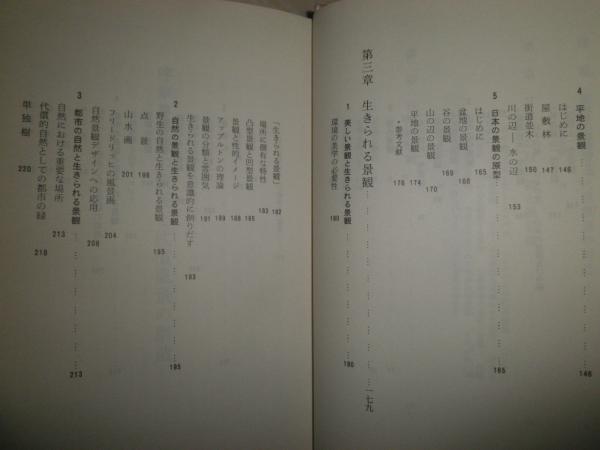 4 平地の景観 …… 146
はじめに 146
屋敷林 147
街道並木 150
川の辺―水の辺 153
5 日本の景観の原型 …… 165
はじめに 165
盆地の景観 169
谷の景観 170
山の辺の景観 174
平地の景観 176
・参考文献
第三章 生きられる景観 …… 一七九
1 美しい景観と生きられる景観 …… 180
環境の美学の必要性 180
「生きられる景観」 182
場所に固有な特性 183
凸型景観と凹型景観 185
景観と性的イメージ 188
アップルトンの理論 189
景観の分類と雰囲気 191
生きられる景観を意識的に創りだす 193
2 自然の景観と生きられる景観 …… 195
野生の自然と生きられる景観 195
点景 198
山水画 201
フリードリッヒの風景画 204
自然景観デザインへの応用 208
3 都市の自然と生きられる景観 …… 213
自然における重要な場所 213
代償的自然としての都市の緑 218
単独樹 220